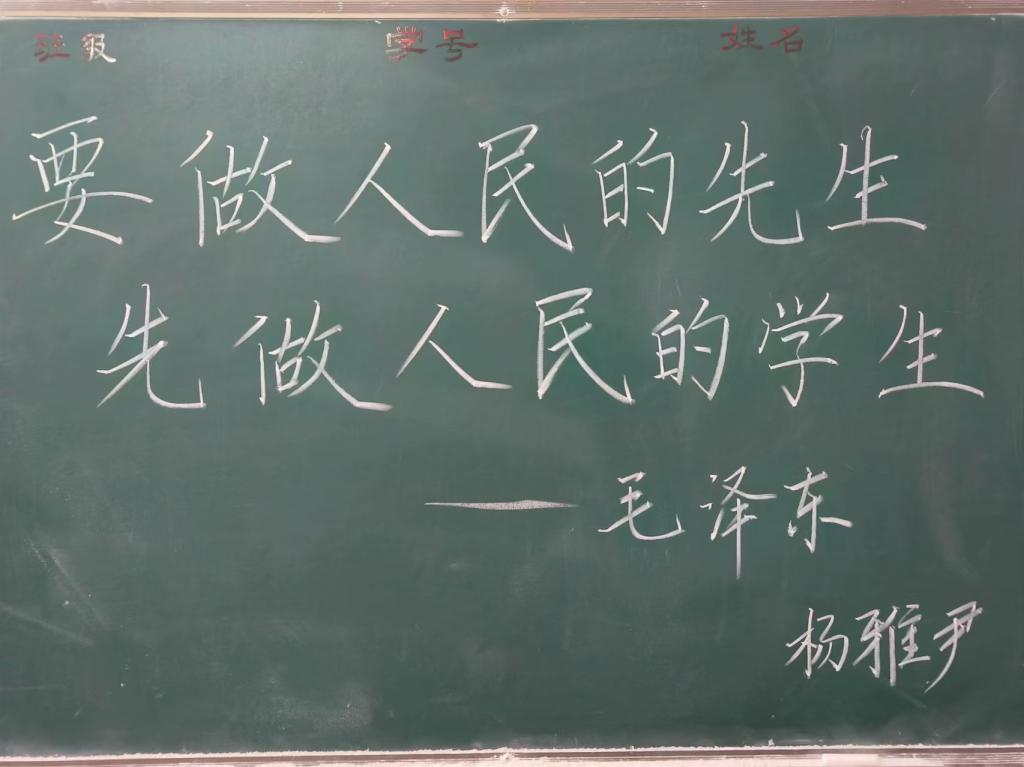 班级 学号 姓名
要做人民的先生
先做人民的学生
——毛泽东
杨雅尹